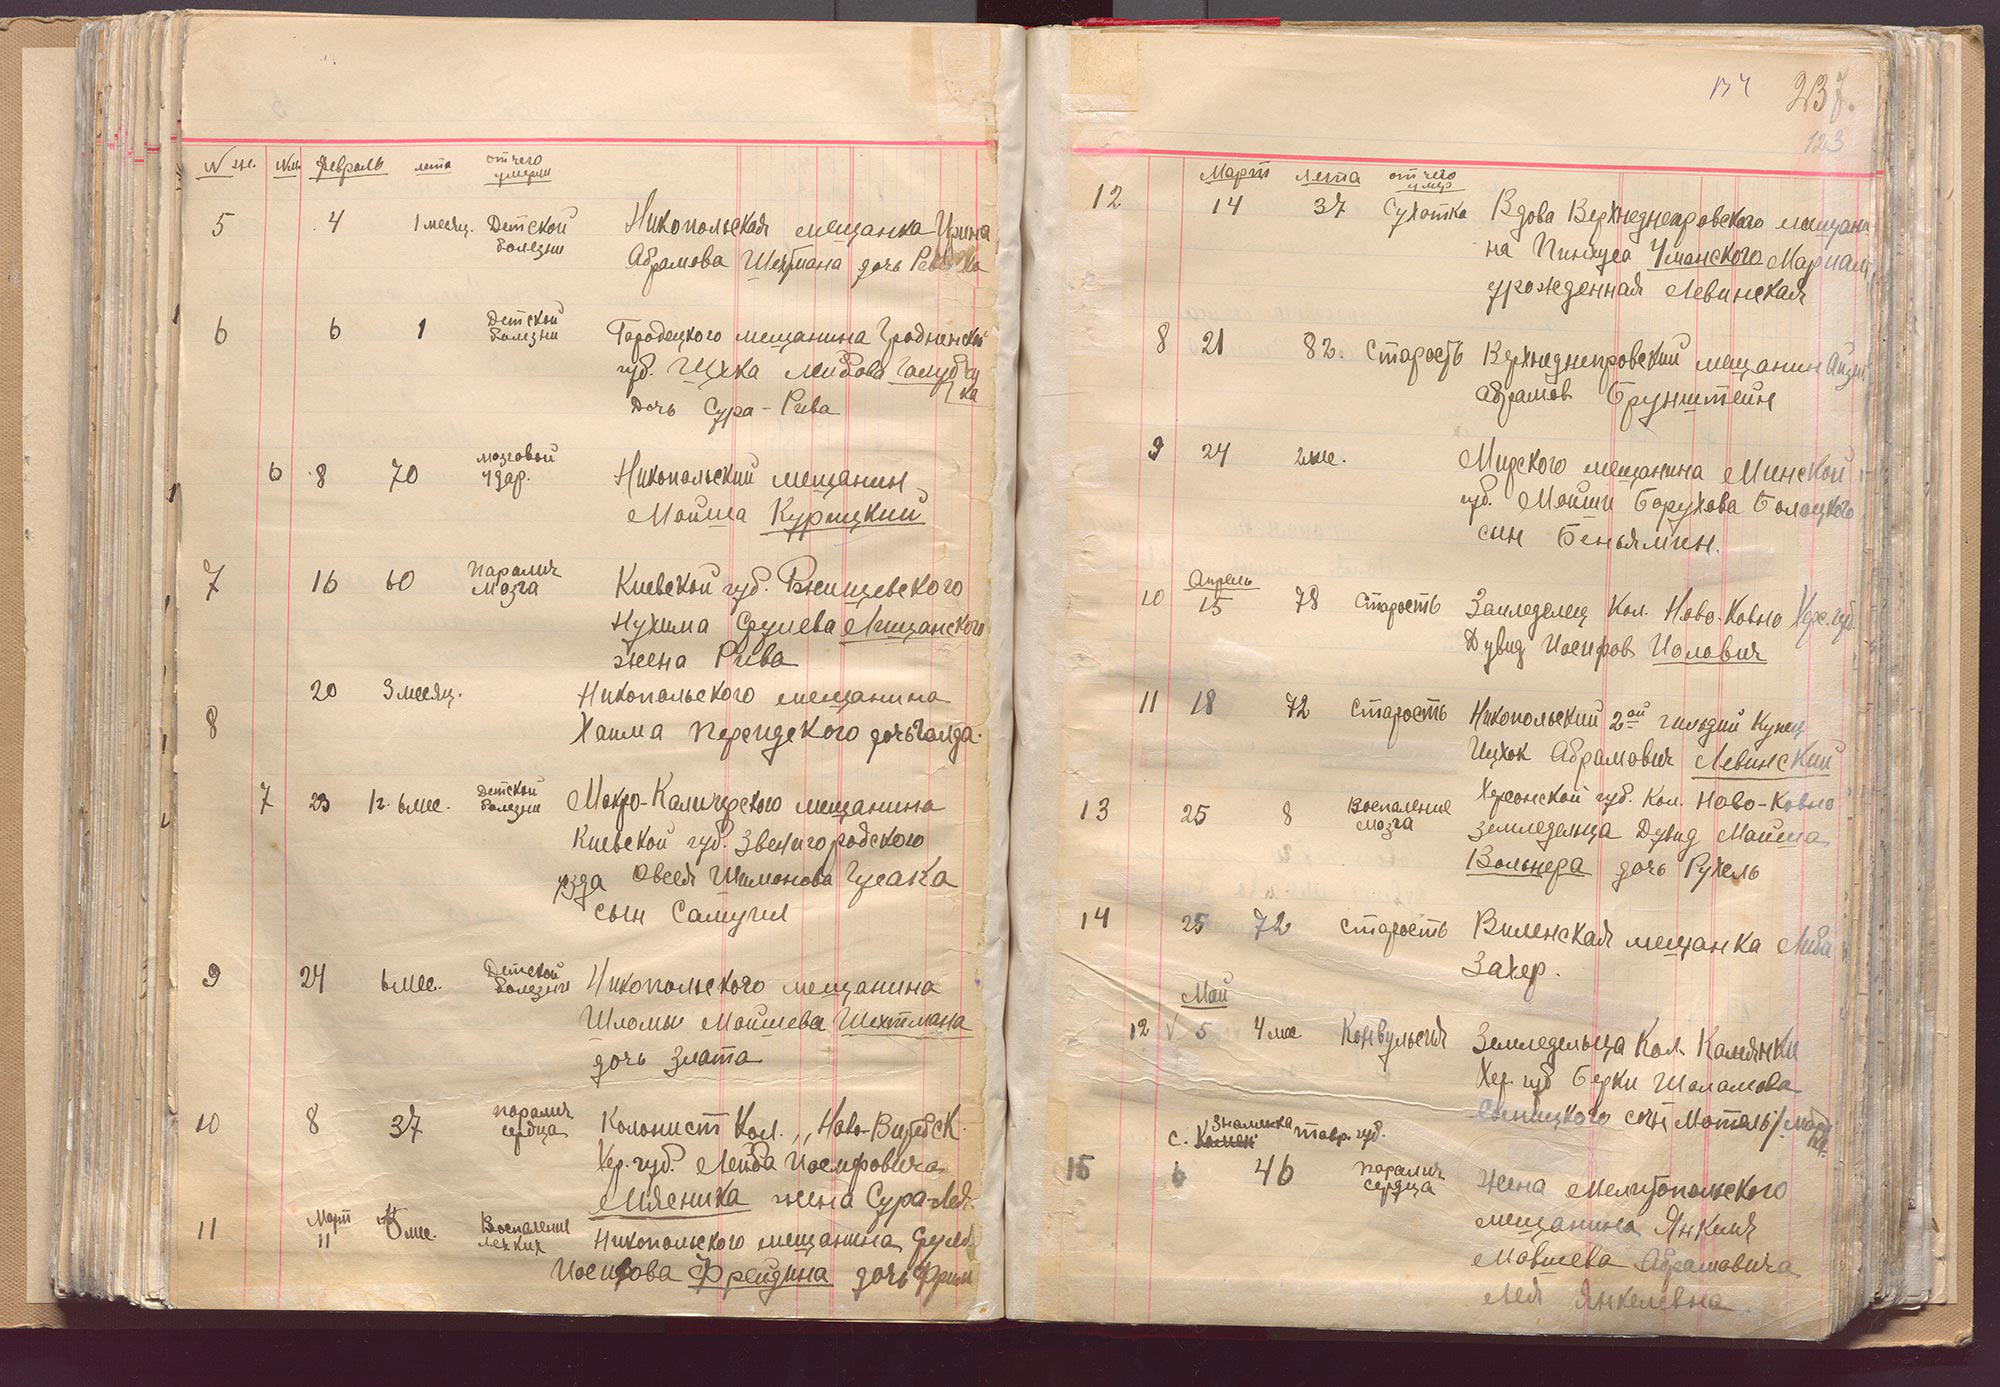 N ж. N м. Февраль лета отчего умерли
5 4 1 месяц. Детской болезни Никопольская мещанка Ирина
Абрамова Шехтмана дочь
6 6 1 Детской болезни Городецкого мещанина Гродненской
губ. Ицхка Лейбова
дочь Сура-Рива
6 8 70 мозговой удар. Никопольский мещанин
Мойша Курицкий
7 16 60 паралич мозга Киевской губ. Ржищевского
Нухима Сруиева Лищанского
жена Рива
8 20 3 месяц. Никопольского мещанина
Хаима дочь Голда.
7 23 1 г. 6 мес. Детской болезни Мокро-Калигорского мещанина
Киевской губ. Звенигородского
уезда Овсея Шимонова Гусака
сын Самуил
9 24 6 мес. Детской болезни Никопольского мещанина
Шломы Мойшева Шехтмана
дочь Злата
10 8 37 паралич сердца Колонист Кол. „Ново-Витебск
Хер. губ. Лейба Иосифовича
Мясника жена Сура-Лея
11 Март 11 мес. Воспаление легких Никопольского мещанина
Иосифова Фрейдина дочь
174 237.
123
Март лета отчего умер
12 14 37 Сухотка Вдова Верхнеднепровского мещани-
на Пинхуса Уманского
урожденная Левинская
8 21 82. Старость Верхнеднепровский мещанин
Абрамов Брунштейн
9 24 2 ме. Мирского мещанина Минской
губ. Мойши Борухова Болоцкого
син Беньямин.
Апрель
10 15 78 старость Земледелец Кол. Ново-Ковно Хер. губ.
Дувид Иосифов Иолович
11 18 72 старость Никопольский 2ой гильдии Купец
Ицхок Абрамович Левинский
13 25 8 Воспаление мозга Херсонской губ. Кол. Ново-Ковно
земледельца Дувид Мойша
Вольнера дочь Рухель
14 25 72 старость Виленская мещанка Либа
Захер.
Май
12 √ 5 4 ме Конвульсия Земледельца Кол. Камянки
Хер. губ Берки Шоламова
сын Мотель
с. Знаменка Тавр. губ.
15 6 46 паралич сердца Жена Мелитопольского
мещанина Янкиля
Мовшева Абрамовича
Лея Янкелевна